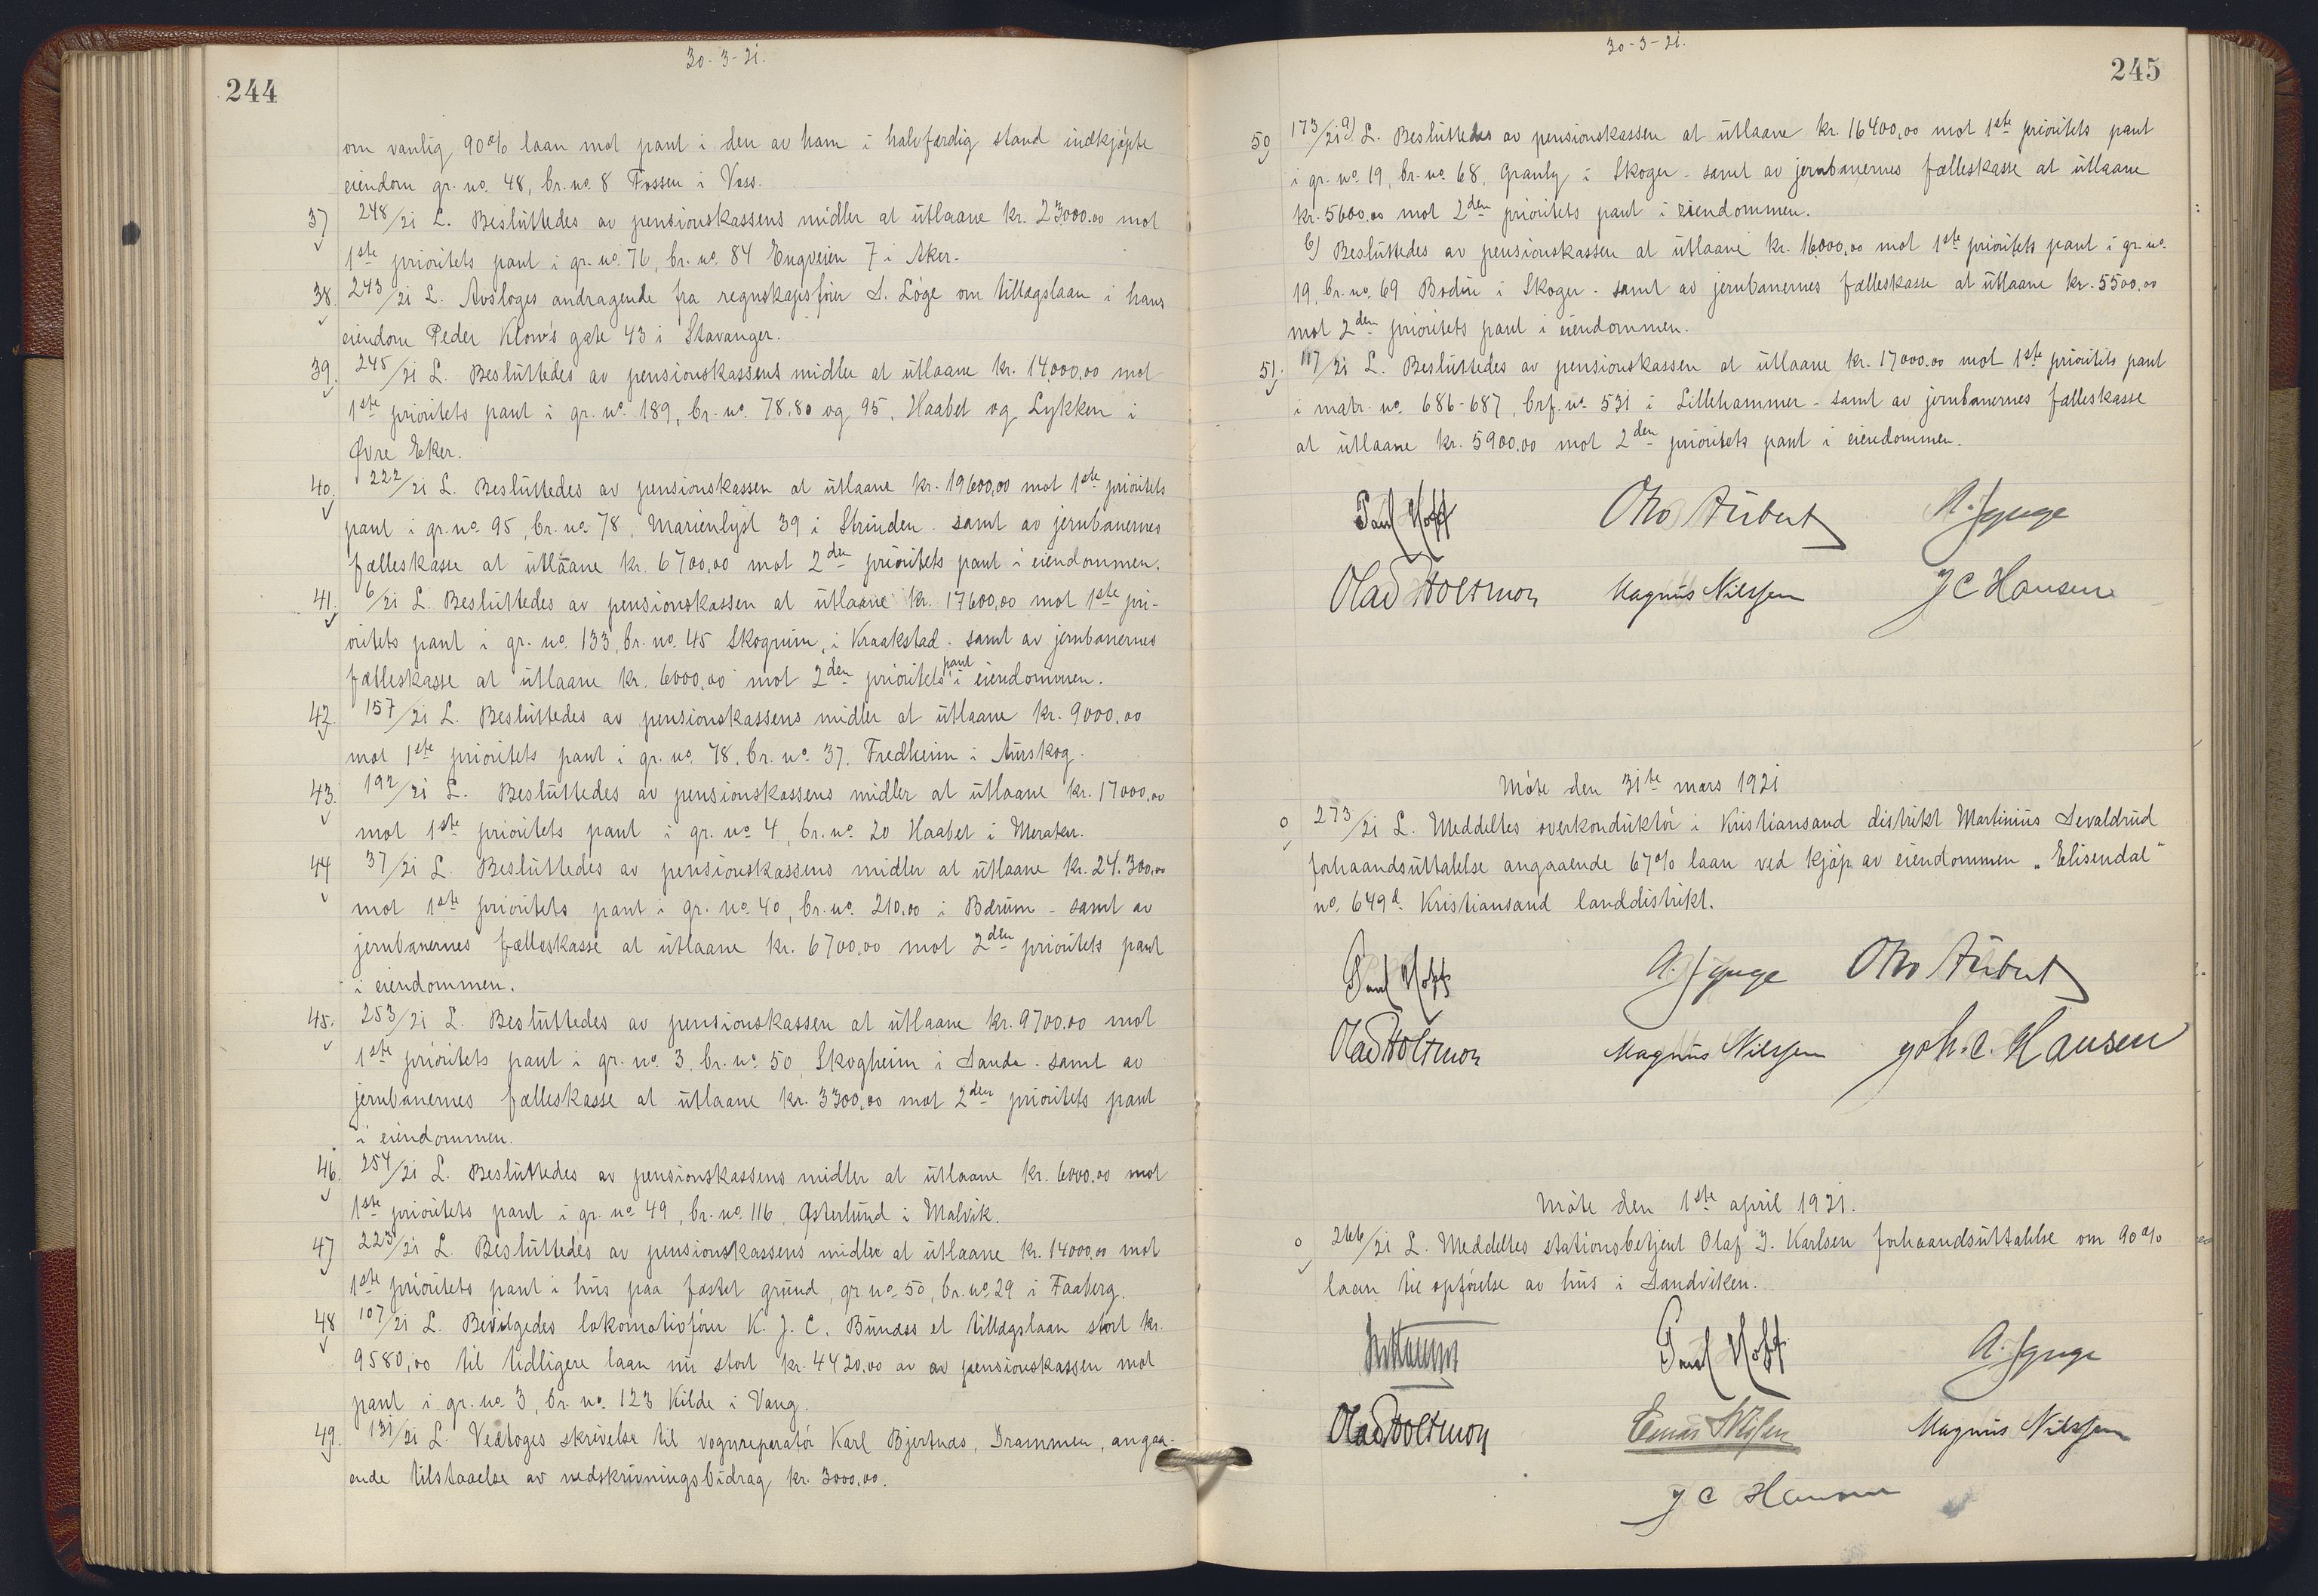 30-3-21.
244
om vanlig 90% laan mot pant i den av ham i halvfærdig stand indkjøpte
eiendom gr. no. 48, br. no. 8 Fossen i Voss.
37 248/21 L. Besluttedes av pensionskassens midler at utlaane kr. 23000.00 mot
1ste prioritets pant i gr. no. 76, br. no. 84 Engveien 7 i Aker.
38. 243/21 L. Avsloges andragende fra regnskapsfører S. Løge om tillægslaan i hans
eiendom Peder Klow's gate 43 i Stavanger.
39. 245/21 L. Besluttedes av pensionskassens midler at utlaane kr. 14,000,00 mot
1ste prioritets pant i gr. no. 189, br. no. 78.80 og 95, Haabet og Lykken i
Øvre Eker.
40. 222/21 L. Besluttedes av pensionskassen at utlaane kr. 19600,00 mot 1ste prioritets
pant i gr. no. 95, br. no. 78, Marienlyst 39 i Strinden - samt av jernbanernes
fælleskasse at utlaane kr. 6700,00 mot 2den prioritets pant i eiendommen.
41. 6/21 L. Besluttedes av pensionskassen at utlaane kr. 17600,00 mot 1ste pri-
oritets pant i gr. no. 133, br. no. 45 Skogrum, i Kraakstad - samt av jernbanernes
fælleskasse at utlaane kr. 6000,00 mot 2den prioritets pant i eiendommen.
42. 157/21 L. Besluttedes av pensionskassens midler at utlaane kr. 9000,00
mot 1ste prioritets pant i gr. no. 78, br. no. 37, Fredheim i Aurskog.
43. 192/21 L. Besluttedes av pensionskassens midler at utlaane kr. 17000,00
mot 1ste prioritets pant i gr. no. 4, br. no. 20 Haabet i Meraker.
44 37/21 L. Besluttedes av pensionskassens midler at utlaane kr. 24.300,00
mot 1ste prioritets pant i gr. no. 40, br. no. 210,00 i Bærum - samt av
jernbanernes fælleskasse at utlaane kr. 6700,00 mot 2den prioritets pant
i eiendommen.
45. 253/21 L. Besluttedes av pensionskassen at utlaane kr. 9700.00 mot
1ste prioritets pant i gr. no. 3, br. no. 50, Skogheim i Sande - samt av
jernbanernes fælleskasse at utlaane kr. 3300,00 mot 2den prioritets pant
i eiendommen.
46. 254/21 L. Besluttedes av pensionskassens midler at utlaane kr. 6000.00 mot
1ste prioritets pant i gr. no. 49, br. no. 116, Østerlund i Malvik.
47 223/21 L. Besluttedes av pensionskassens midler at utlaane kr. 14000,00 mot
1ste prioritets pant i hus paa fæstet grund, gr. no. 50, br. no. 29 i Faaberg.
48 107/21 L. Bevilgedes lokomotivfører K. J. C. Bunæss et tillægslaan stort kr.
9580,00 til tidligere laan nu stort kr. 4420.00 av av pensionskassen mot
pant i gr. no. 3, br. no. 123 Kilde i Vang.
49. 131/21 L. Vedtoges skrivelse til vognreperatør Karl Bjertnæs, Drammen, angaa-
ende tilstaaelse av nedskrivningsbidrag kr. 3000.00.
30-3-21.
245
50 173/21 a) L. Besluttedes av pensionskassen at utlaane kr. 16400,00 mot 1ste prioritets pant
i gr. no. 19, br. no. 68, Granly i Skoger - samt av jernbanernes fælleskasse at utlaane
kr. 5600.00 mot 2den prioritets pant i eiendommen.
b) Besluttedes av pensionskassen at utlaane kr. 16,000,00 mot 1ste prioritets pant i gr. no.
19, br. no. 69 Bodin i Skoger - samt av jernbanernes fælleskasse at utlaane kr. 5500,00
mot 2den prioritets pant i eiendommen.
51. 117/21 L. Besluttedes av pensionskassen at utlaane kr. 17000.00 mot 1ste prioritets pant
i matr. no. 686-687, brf. no. 531 i Lillehammer - samt av jernbanernes fælleskasse
at utlaane kr. 5900.00 mot 2den prioritets pant i eiendommen.
Paul Hoff Otto Aubert
Olav Holtmon Magnus Nilssen J C Hansen
Møte den 31te mars 1921
0 273/21 L. Meddeltes overkonduktør i Kristiansand distrikt Martinius Sevaldrud
forhaandsuttalelse angaaende 67% laan ved kjøp av eiendommen "Elisendal"
no. 649d Kristiansand landdistrikt.
Paul Hoff Otto Aubert
Olav Holtmon Magnus Nilssen Joh. C. Hansen
Møte den 1ste april 1921.
0 266/21 L. Meddeltes stationsbetjent Olaf J. Karlsen forhaandsuttalelse om 90%
laan til opførelse av hus i Sandviken.
Paul Hoff
Olav Holtmon Magnus Nilssen
J C Hansen